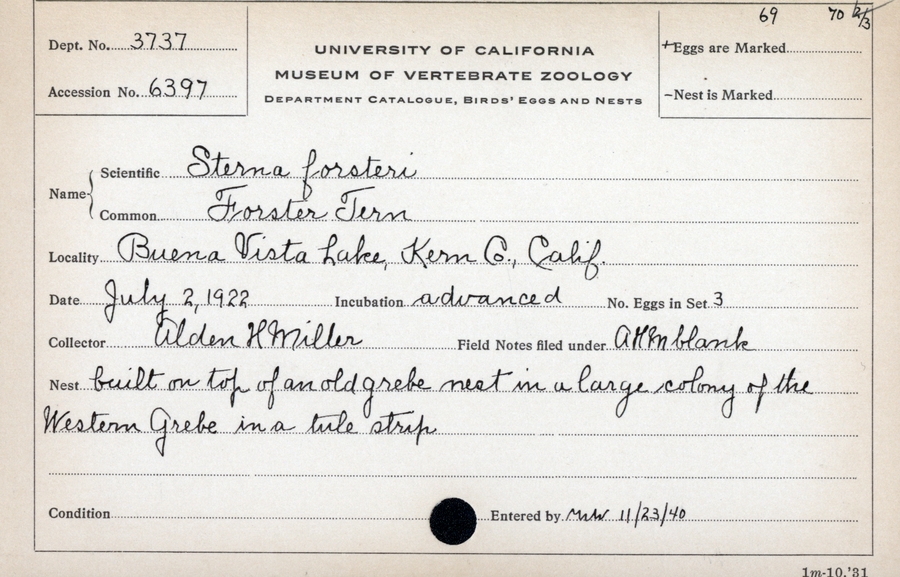 69 70 2/3
Dept. No. 3737
UNIVERSITY OF CALIFORNIA
+Eggs are Marked
MUSEUM OF VERTEBRATE ZOOLOGY
Accession No. 6397
DEPARTMENT CATALOGUE, BIRDS' EGGS AND NESTS
-Nest is Marked
Name
Scientific Sterna forsteri
Common Forster Tern
Locality Buena Vista Lake, Kern Co., Calif.
Date July 2, 1922 Incubation advanced No. Eggs in Set 3
Collector Alden H Miller Field Notes filed under AHM blank
Nest built on top of an old grebe nest in a large colony of the
Western Grebe in a tule strip
Condition Entered by 11/23/40
1m-10,'31